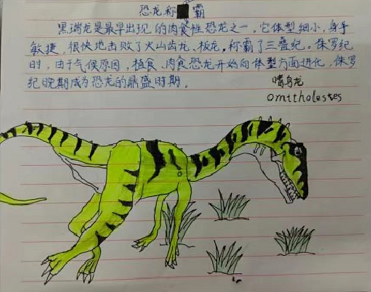 恐龙称霸
黑瑞龙是最早出现的肉食性恐龙之一,它体型细小,身手
敏捷,很快地击败了犬山齿龙、板龙,称霸了三叠纪,侏罗纪
时,由于气候原因,植食、肉食恐龙开始向体型方面进化,侏罗
纪晚期成为恐龙的鼎盛时期。
嗜鸟龙
Ornitholestes